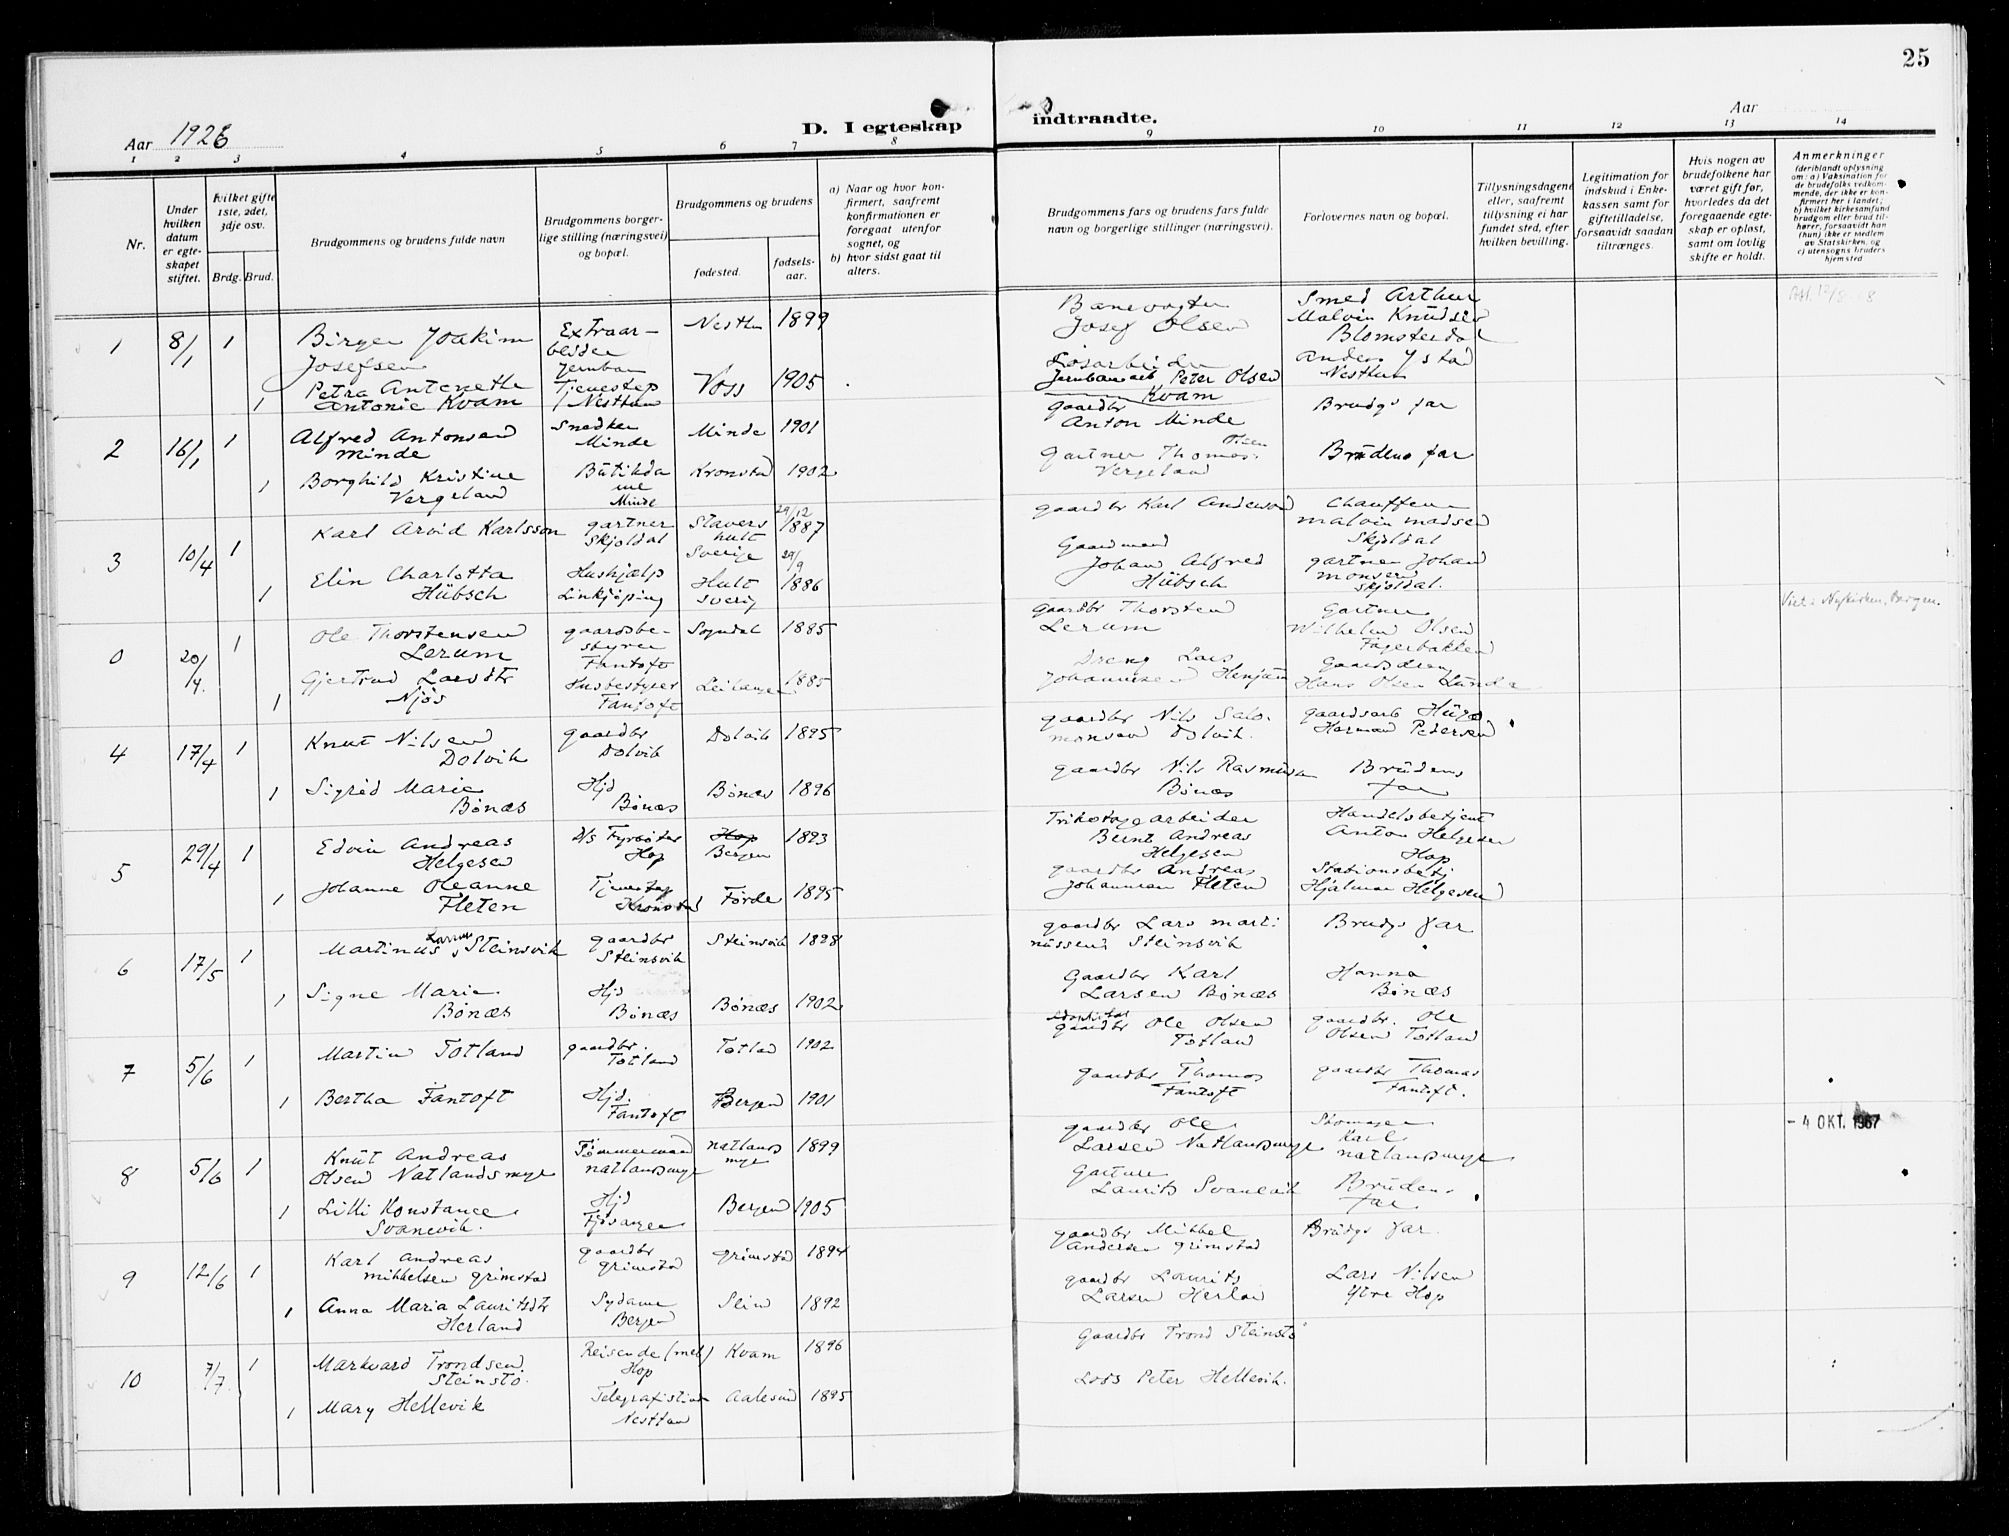 25
Aar 1926
D. I egteskap
indtraadte.
Aar
1 2 3 4 5 6 7 8 9 10 11 12 13 14
Nr.
Under hvilken datum er egteskapet stiftet.
hvilket gifte 1ste, 2det, 3dje osv.
Brdg. Brud.
Brudgommens og brudens fulde navn
Brudgommens borgerlige stilling (næringsvei) og bopæl.
Brudgommens og brudens
fødested.
fødselsaar.
a) Naar og hvor konfirmert, saafremt konfirmationen er foregaat utenfor sognet, og
b) hvor sidst gaat til alters.
Brudgommens fars og brudens fars fulde navn og borgerlige stillinger (næringsvei).
Forlovernes navn og bopæl.
Tillysningsdagene eller, saafremt tillysning ei har fundet sted, efter hvilken bevilling.
Legitimation for indskud i Enkekassen samt for giftetilladelse, forsaavidt saadan tiltrænges.
Hvis nogen av brudefolkene har været gift før, hvorledes da det foregaaende egteskap er opløst, samt om lovlig skifte er holdt.
Anmerkninger
(deriblandt oplysning om: a) Vaksination for de brudefolks vedkommende, der ikke er konfirmert her i landet; b) hvilket kirkesamfund brudgom eller brud tilhører, forsaavidt han (hun) ikke er medlem av Statskirken, og c) utensogns bruders hjemsted
1 8/1 1 Birger Joakim Josefsen Extraarbeider Jernban Nesttun 1899 Banevogter Josef Olsen Smed Arthur Malvin Knudsen Blomsterdal
1 Petra Antonette Antonie Kvam Tjenestep Nesttun Voss 1905 Jernbanearb Peter Olsen Kvam Anders Ystad Nesttun
2 16/1 1 Alfred Antonsen Minde Snedker Minde Minde 1901 gaardbr Anton Minde Brudgs far
1 Borghild Kristine Vergeland Butikdame Minde Kronstad 1902 Gartner Thomas Olsen Vergeland Brudens far
3 10/4 1 Karl Arvid Karlsson gartner Skjoldal Stavershult Sverige 29/12 1887 gaardbr Karl Anderson Chauffeur Malvin Madsen Skjoldal
1 Elin Charlotta Hübsch Hushjælp Linkjöping Hult Sverig 29/9 1886 Gaardmand Johan Alfred Hübsch gartner Johan Monsen Skjoldal.
0 20/4. 1 Ole Thorstensen Lerum gaardsbestyrer Fantoft Sogndal 1885 gaardbr Thorsten Lerum Gartner Wilhelm Olsen Fagerbakken Viet i Nykirken, Bergen.
1 Gjertrud Larsdtr Njøs Husbestyrer Fantoft Leikanger 1885 Dreng Lars Johannesen Henjum Gaardsdreng Hans Olsen Lunde
4 17/4 1 Knut Nilsen Dolvik gaardbr Dolvik Dolvik 1895 gaardbr Nils Salomonsen Dolvik. gaardsarb Hugo Herman Pedersen
1 Sigrid Marie Bønæs Hjd Bønæs Bønæs 1896 gaardbr Nils Rasmusen Bønæs Brudens far
5 29/4 1 Edvin Andreas Helgesen D/S Fyrbøter Hop Hop Bergen 1893 Trikotagearbeider Bernt Andreas Helgesen Handelsbetjent Anton Helgesen Hop
1 Johanne Oleanne Fleten Tjenestep Kronstad Førde 1895 gaardbr Andreas Johannesen Fleten Stationsbetj. Hjalmar Helgesen
6 17/5 1 Martinus Larsen Steinsvik gaardbr Steinsvik Steinsvik 1898 gaardbr Lars Martinussen Steinsvik Brudgs far
1 Signe Marie Bønæs Hjd Bønæs Bønæs 1902 Gaardbr Karl Larsen Bønæs Hanna Bønæs
7 5/6 1 Martin Totland gaardbr. Totland Totland 1902 gaardbr Ole Olsen Totland gaardbr. Ole Olsen Totland
1 Bertha Fantoft Hjd. Fantoft Bergen 1901 gaardbr Thomas Fantoft gaardbr Thomas Fantoft.
8 5/6 1 Knut Andreas Olsen Natlandsmyr Tømmermand Natlandsmyr Natlandsmyr 1899 gaardbr Ole Larsen Natlandsmyr Karl Natlandsmyr - 4 OKT. 1967
1 Lilli Konstance Svanevik. Hjd Fjøsanger Bergen 1905 Gartner Laurits Svanevik Brudens far
9 12/6 1 Karl Andreas Mikkelsen Grimstad gaardbr Grimstad Grimstad 1894 gaardbr Mikkel Andersen Grimstad Brudgs far.
1 Anna Maria Lauritsdtr Herland Sydame Bergen 1892 gaardbr Laurits Larsen Herland Lars Nilsen Ytre Hop
10 7/7. 1 Markvard Trondsen Steinstø. Reisende Hop Kvam 1896 Gaardbr Trond Steinstø
1 Mary Hellevik Telegrafistinde Nesttun Aalesund 1895 Lods Peter Hellevik.